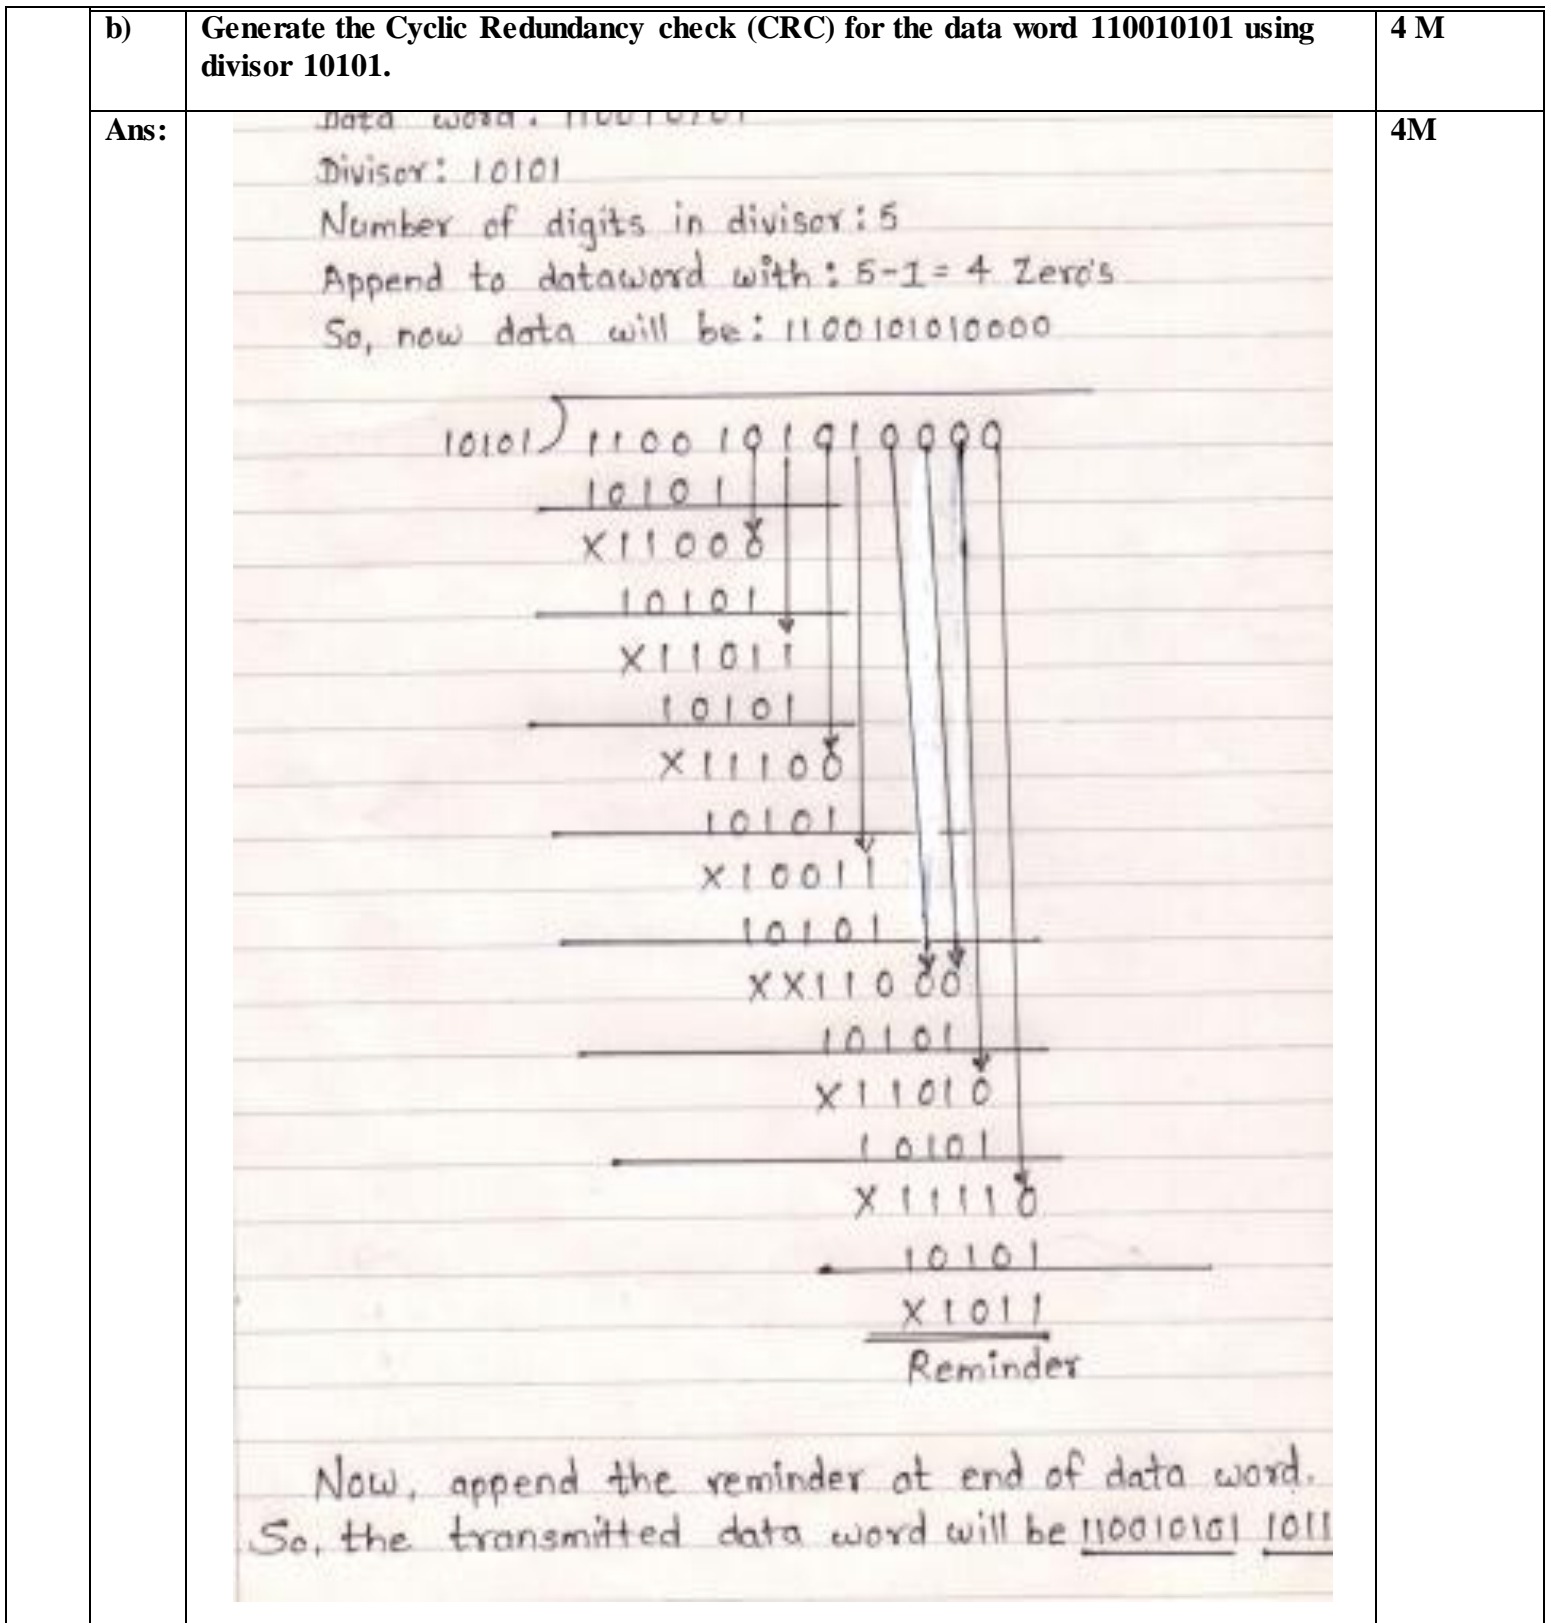 b) Generate the Cyclic Redundancy check (CRC) for the data word 110010101 using 4 M
divisor 10101.
Ans: Data word : 110010101 4M
Divisor : 10101
Number of digits in divisor : 5
Append to dataword with : 5-1 = 4 Zero's
So, now data will be : 1100101010000
10101) 1100101010000
10101
X11000
10101
X11011
10101
X11100
10101
X10011
10101
XX11000
10101
X11010
10101
X11110
10101
X1011
Reminder
Now, append the reminder at end of data word.
So, the transmitted data word will be 110010101 1011